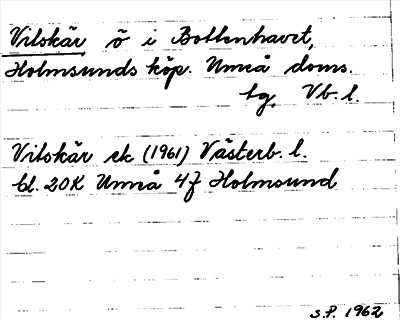 Vilskär ö i Bottenhavet,
Holmsunds köp. Umeå doms.
tg, Vb. l.
Vilskär ek (1961) Västerb. l.
bl. 20K Umeå 4f Holmsund
S.P. 1962